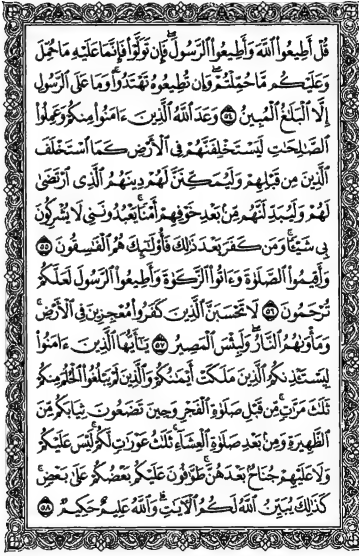 قُلْ أَطِيعُوا۟ ٱللَّهَ وَأَطِيعُوا۟ ٱلرَّسُولَ ۖ فَإِن تَوَلَّوْا۟ فَإِنَّمَا عَلَيْهِ مَا حُمِّلَ
وَعَلَيْكُم مَّا حُمِّلْتُمْ ۖ وَإِن تُطِيعُوهُ تَهْتَدُوا۟ ۚ وَمَا عَلَى ٱلرَّسُولِ
إِلَّا ٱلْبَلَٰغُ ٱلْمُبِينُ ٥٤ وَعَدَ ٱللَّهُ ٱلَّذِينَ ءَامَنُوا۟ مِنكُمْ وَعَمِلُوا۟
ٱلصَّٰلِحَٰتِ لَيَسْتَخْلِفَنَّهُمْ فِى ٱلْأَرْضِ كَمَا ٱسْتَخْلَفَ
ٱلَّذِينَ مِن قَبْلِهِمْ وَلَيُمَكِّنَنَّ لَهُمْ دِينَهُمُ ٱلَّذِى ٱرْتَضَىٰ
لَهُمْ وَلَيُبَدِّلَنَّهُم مِّنۢ بَعْدِ خَوْفِهِمْ أَمْنًا ۚ يَعْبُدُونَنِى لَا يُشْرِكُونَ
بِى شَيْـًٔا ۚ وَمَن كَفَرَ بَعْدَ ذَٰلِكَ فَأُو۟لَٰٓئِكَ هُمُ ٱلْفَٰسِقُونَ ٥٥
وَأَقِيمُوا۟ ٱلصَّلَوٰةَ وَءَاتُوا۟ ٱلزَّكَوٰةَ وَأَطِيعُوا۟ ٱلرَّسُولَ لَعَلَّكُمْ
تُرْحَمُونَ ٥٦ لَا تَحْسَبَنَّ ٱلَّذِينَ كَفَرُوا۟ مُعْجِزِينَ فِى ٱلْأَرْضِ ۚ
وَمَأْوَىٰهُمُ ٱلنَّارُ ۖ وَلَبِئْسَ ٱلْمَصِيرُ ٥٧ يَٰٓأَيُّهَا ٱلَّذِينَ ءَامَنُوا۟
لِيَسْتَـْٔذِنكُمُ ٱلَّذِينَ مَلَكَتْ أَيْمَٰنُكُمْ وَٱلَّذِينَ لَمْ يَبْلُغُوا۟ ٱلْحُلُمَ مِنكُمْ
ثَلَٰثَ مَرَّٰتٍ ۚ مِّن قَبْلِ صَلَوٰةِ ٱلْفَجْرِ وَحِينَ تَضَعُونَ ثِيَابَكُم مِّنَ
ٱلظَّهِيرَةِ وَمِنۢ بَعْدِ صَلَوٰةِ ٱلْعِشَآءِ ۚ ثَلَٰثُ عَوْرَٰتٍ لَّكُمْ ۚ لَيْسَ عَلَيْكُمْ
وَلَا عَلَيْهِمْ جُنَاحٌۢ بَعْدَهُنَّ ۚ طَوَّٰفُونَ عَلَيْكُم بَعْضُكُمْ عَلَىٰ بَعْضٍ ۚ
كَذَٰلِكَ يُبَيِّنُ ٱللَّهُ لَكُمُ ٱلْءَايَٰتِ ۗ وَٱللَّهُ عَلِيمٌ حَكِيمٌ ٥٨